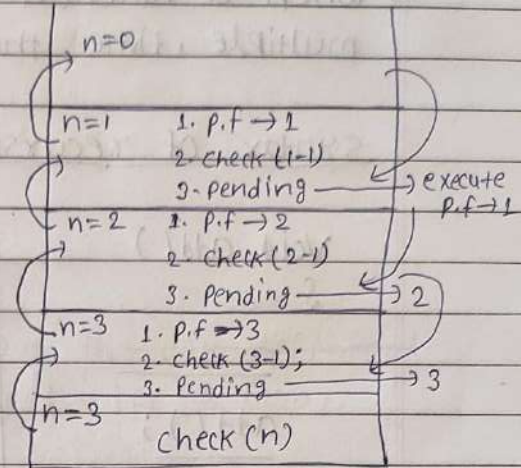 n=0
n=1 1. P.f → 1
2. check (1-1)
3. Pending → execute
P.f → 1
n=2 1. P.f → 2
2. check (2-1)
3. Pending → 2
n=3 1. P.f → 3
2. check (3-1);
3. Pending → 3
n=3
check (n)